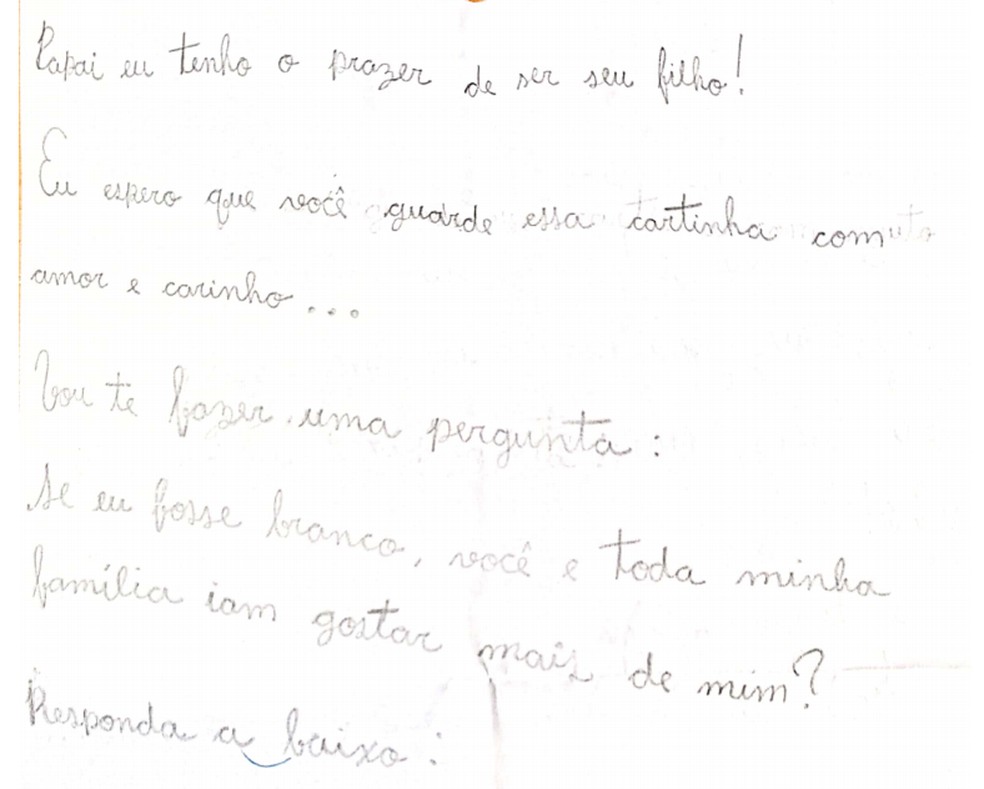 Papai eu tenho o prazer de ser seu filho!
Eu espero que você guarde essa cartinha com
amor e carinho...
Vou te fazer uma pergunta:
Se eu fosse branco, você e toda minha
família iam gostar mais de mim?
Responda a baixo: